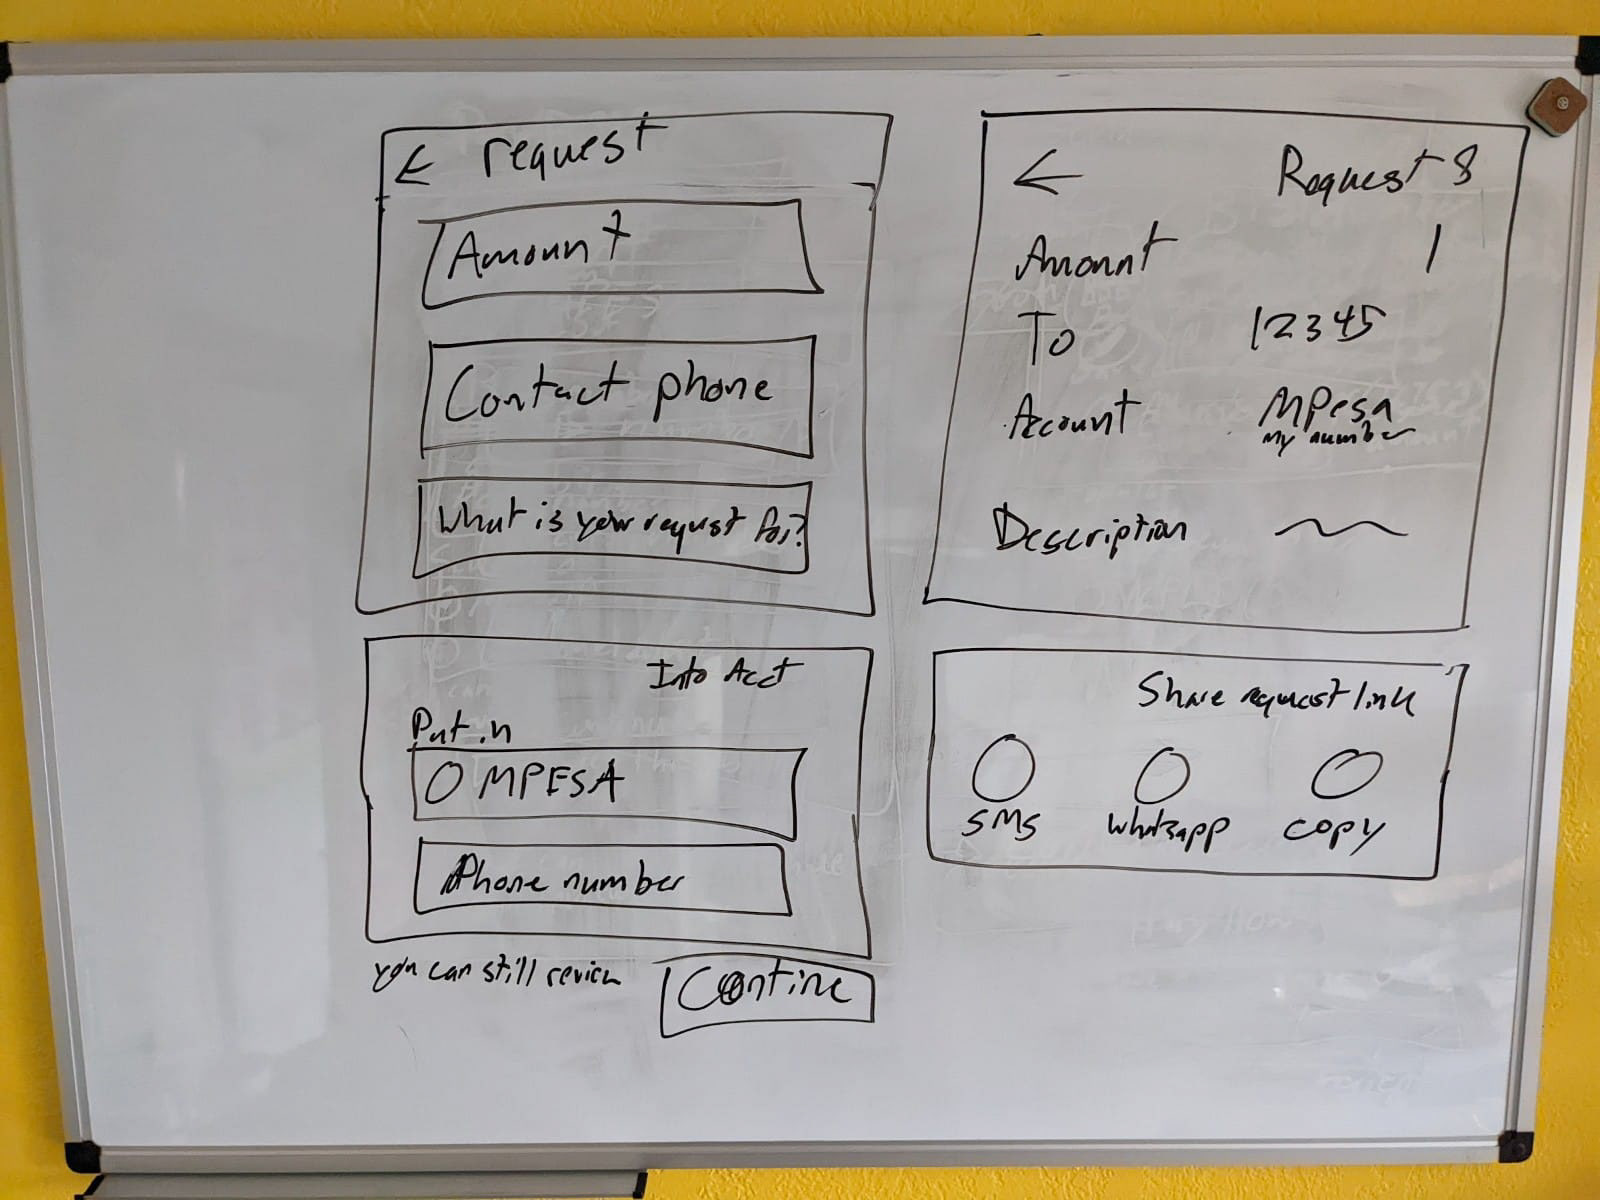 ← request
Amount
Contact phone
What is your request for?
Into Acct
Put in
O MPESA
Phone number
you can still review
Contine
← Request 8
Amount 1
To 12345
Account MPesa
my number
Description
Share request link
SMS whatsapp copy